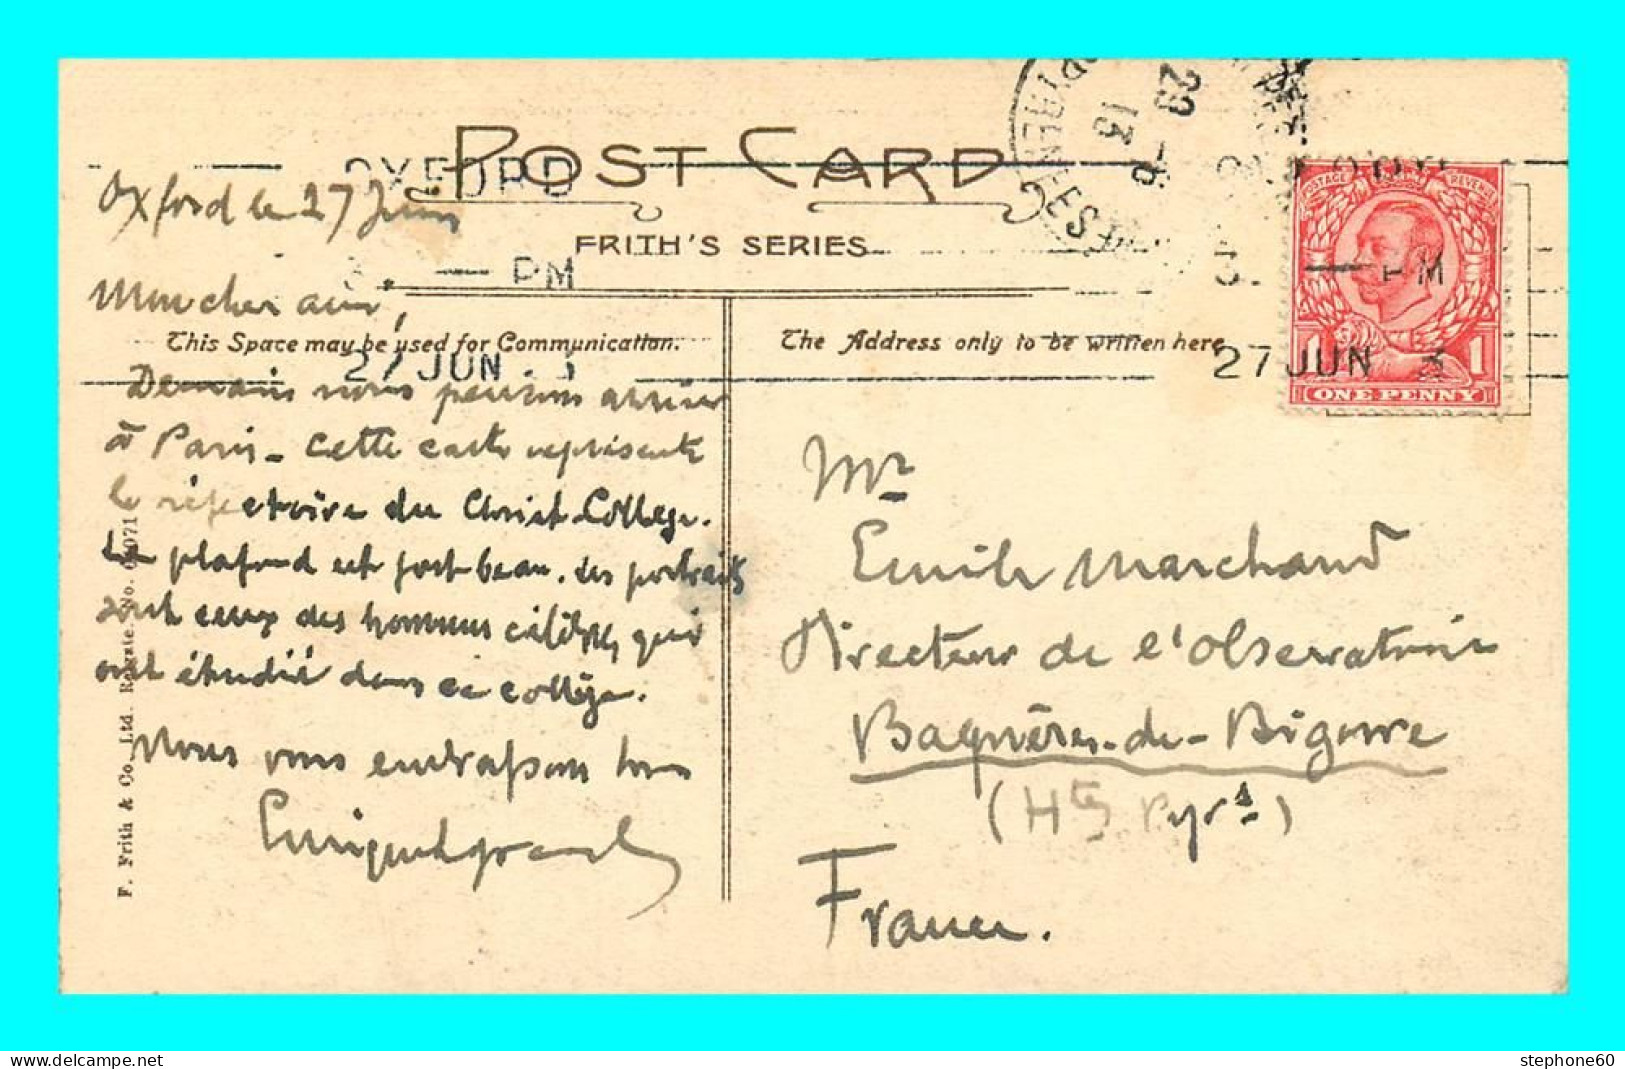 POST CARD
FRITH'S SERIES
OXFORD
3. — PM
27 JUN 3
This Space may be used for Communication.
The Address only to be written here
Oxford le 27 Juin
Mon cher ami,
Demain nous pensons arriver
à Paris - Cette carte représente
le réfectoire du Christ-College.
Le plafond est fort beau. Les portraits
sont ceux des hommes célèbres qui
ont étudié dans ce collège.
Nous vous embrassons tous
Mr
Emile Marchand
Directeur de l'Observatoire
Bagnères-de-Bigorre
(Htes Pyrs)
France.
POSTAGE
REVENUE
1 1
ONE PENNY
PM
27 JUN 3
PYRENEES
29
13
F. Frith & Co. Ltd. Reigate. No.
stephone60